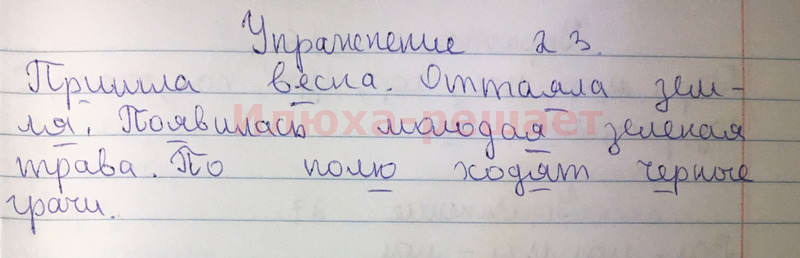 Упражнение 23.
Пришла весна. Оттаяла зем-
ля. Появилась молодая зеленая
трава. По полю ходят черные
грачи.
Илюха-решает